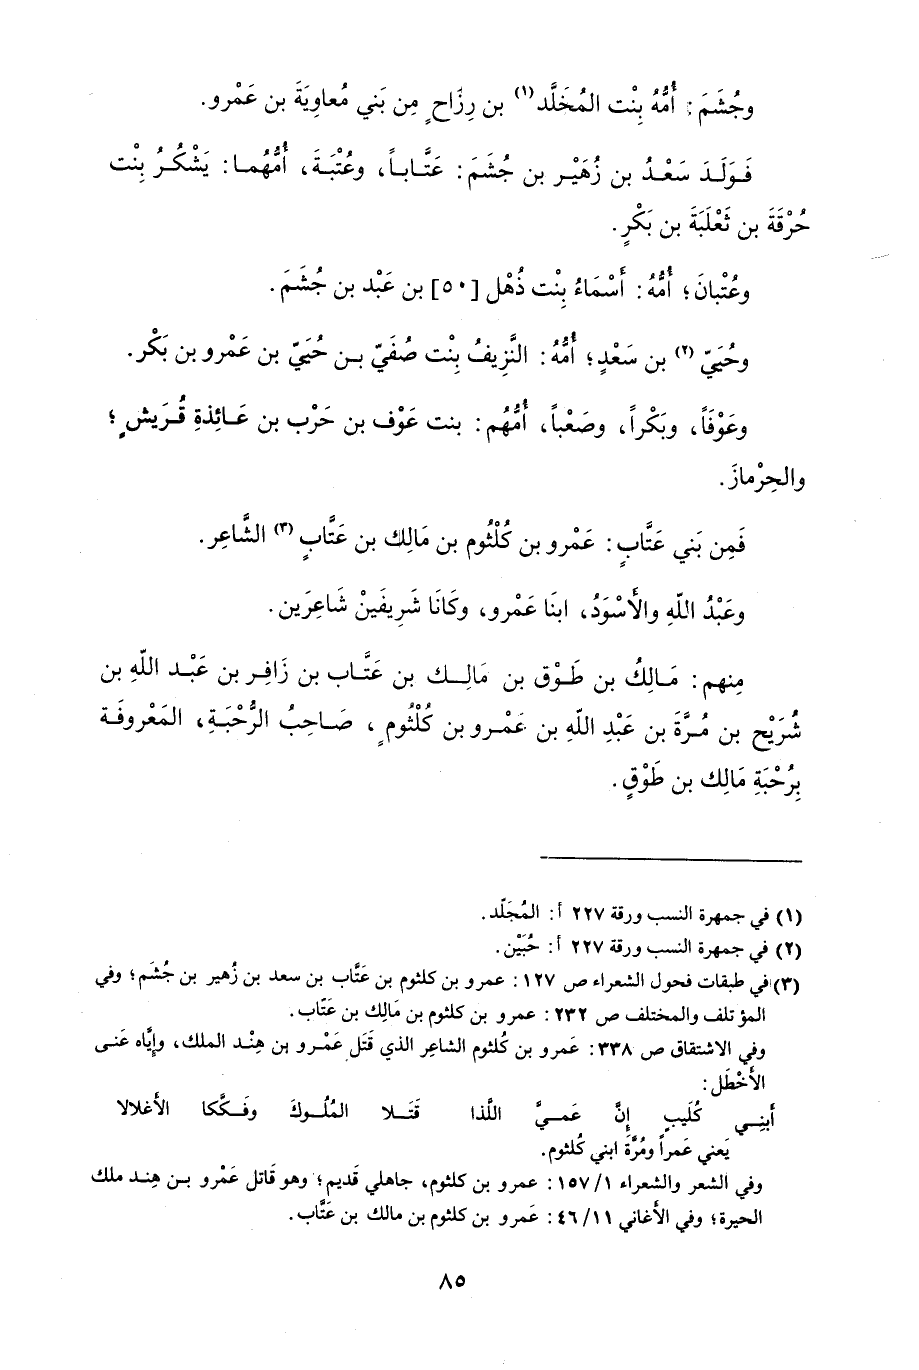 وجُشَمَ: أُمُّهُ بِنْت المُخَلَّد(١) بن رِزَاحٍ مِن بَني مُعاوِيَةَ بن عَمْرو.
فَوَلَدَ سَعْدُ بن زُهَيْر بن جُشَمَ: عَتَّاباً، وعُتْبَةَ، أُمُّهُما: يَشْكُرُ بِنْت
حُرْقَةَ بن ثَعْلَبَةَ بن بَكْرٍ.
وعُتْبانَ؛ أُمُّهُ: أَسْمَاءُ بِنْت ذُهْل [٥٠] بن عَبْد بن جُشَمَ.
وحُيَيّ(٢) بن سَعْدٍ؛ أُمُّهُ: النَّزِيفُ بِنْت صُفَيّ بن حُيَيّ بن عَمْرو بن بَكْر.
وعَوْفَاً، وبَكْراً، وصَعْباً، أُمُّهُم: بنت عَوْف بن حَرْب بن عَائِذةِ قُرَيش؛
والحِرْمازَ.
فَمِن بَني عَتَّابٍ: عَمْرو بن كُلْثُوم بن مَالِك بن عَتَّابٍ(٣) الشَّاعِر.
وعَبْدُ اللّهِ والأَسْوَدُ، ابنَا عَمْرو، وكَانَا شَرِيفَيْنْ شَاعِرَين.
مِنهم: مَالِكُ بن طَوْق بن مَالِك بن عَتَّاب بن زَافِر بن عَبْد اللّهِ بن
شُرَيْح بن مُرَّةَ بن عَبْدِ اللّهِ بن عَمْرو بن كُلْثُومٍ، صَاحِبُ الرُّحْبَةِ، المَعْروفَة
بِرُحْبَةِ مَالِك بن طَوْقٍ.
(١) في جمهرة النسب ورقة ٢٢٧ أ: المُجَلّد.
(٢) في جمهرة النسب ورقة ٢٢٧ أ: حُبَيْن.
(٣) في طبقات فحول الشعراء ص ١٢٧: عمرو بن كلثوم بن عتَّاب بن سعد بن زُهير بن جُشَم؛ وفي
المؤتلف والمختلف ص ٢٣٢: عمرو بن كلثوم بن مَالِك بن عتّاب.
وفي الاشتقاق ص ٣٣٨: عَمرو بن كُلثوم الشاعِر الذي قَتَل عَمْرو بن هِنْد الملك، وإيَّاه عَنى
الأَخْطَل:
أَبَنِي كُلَيبٍ إنَّ عَمَيَّ اللَّذا قَتَلا المُلُوكَ وفَكَّكا الأَغْلالا
يَعني عَمراً ومُرَّةَ ابني كُلثوم.
وفي الشعر والشعراء ١/١٥٧: عمرو بن كلثوم، جاهلي قَديم؛ وهو قاتل عَمْرو بن هِند ملك
الحيرة؛ وفي الأَغاني ٤٦/١١: عَمرو بن كلثوم بن مالك بن عتَّاب.
٨٥